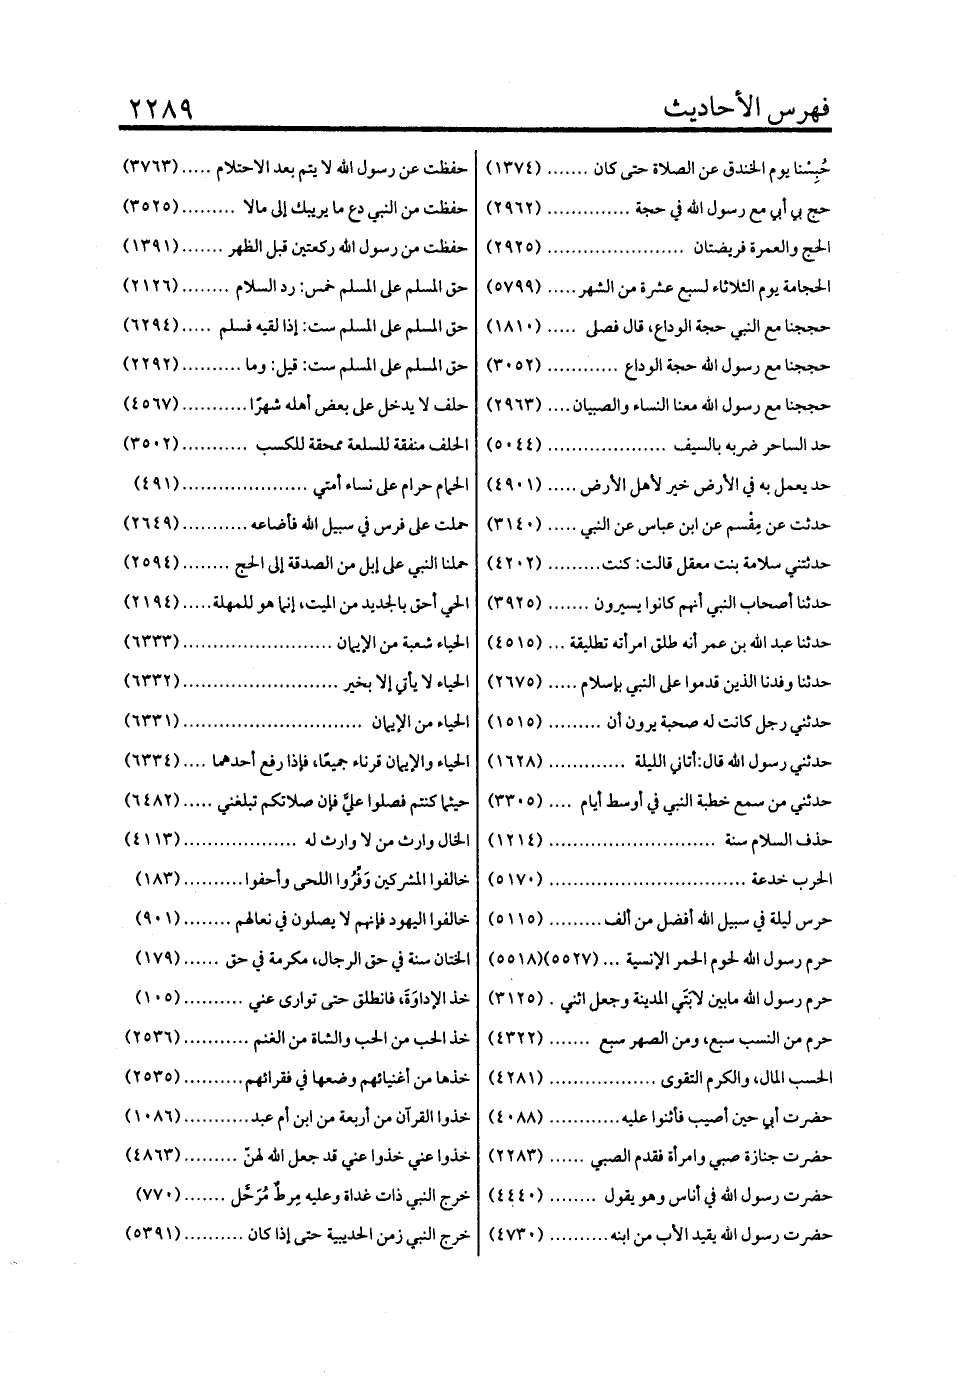 فهرس الأحاديث ٢٢٨٩
حُبِسْنا يوم الخندق عن الصلاة حتى كان ....... (١٣٧٤)
حج بي أبي مع رسول الله في حجة .............. (٢٩٦٢)
الحج والعمرة فريضتان ....................... (٢٩٢٥)
الحجامة يوم الثلاثاء لسبع عشرة من الشهر ..... (٥٧٩٩)
حججنا مع النبي حجة الوداع، قال فصلى ..... (١٨١٠)
حججنا مع رسول الله حجة الوداع ............ (٣٠٥٢)
حججنا مع رسول الله معنا النساء والصبيان .... (٢٩٦٣)
حد الساحر ضربه بالسيف .................... (٥٠٤٤)
حد يعمل به في الأرض خير لأهل الأرض ..... (٤٩٠١)
حدثت عن مِقْسم عن ابن عباس عن النبي ..... (٣١٤٠)
حدثتني سلامة بنت معقل قالت: كنت ......... (٤٢٠٢)
حدثنا أصحاب النبي أنهم كانوا يسيرون ....... (٣٩٢٥)
حدثنا عبد الله بن عمر أنه طلق امرأته تطليقة ... (٤٥١٥)
حدثنا وفدنا الذين قدموا على النبي بإسلام ..... (٢٦٧٥)
حدثني رجل كانت له صحبة يرون أن ......... (١٥١٥)
حدثني رسول الله قال:أتاني الليلة ............. (١٦٢٨)
حدثني من سمع خطبة النبي في أوسط أيام .... (٣٣٠٥)
حذف السلام سنة ............................ (١٢١٤)
الحرب خدعة ................................. (٥١٧٠)
حرس ليلة في سبيل الله أفضل من ألف ......... (٥١١٥)
حرم رسول الله لحوم الحمر الإنسية ... (٥٥٢٧)(٥٥١٨)
حرم رسول الله مابين لابَتَي المدينة وجعل اثني . (٣١٢٥)
حرم من النسب سبع، ومن الصهر سبع ....... (٤٣٢٢)
الحسب المال، والكرم التقوى .................. (٤٢٨١)
حضرت أبي حين أصيب فأثنوا عليه ............ (٤٠٨٨)
حضرت جنازة صبي وامرأة فقدم الصبي ...... (٢٢٨٣)
حضرت رسول الله في أناس وهو يقول ........ (٤٤٤٠)
حضرت رسول الله يقيد الأب من ابنه .......... (٤٧٣٠)
حفظت عن رسول الله لا يتم بعد الاحتلام ..... (٣٧٦٣)
حفظت من النبي دع ما يريبك إلى مالا ......... (٣٥٢٥)
حفظت من رسول الله ركعتين قبل الظهر ....... (١٣٩١)
حق المسلم على المسلم خمس: رد السلام ........ (٢١٢٦)
حق المسلم على المسلم ست: إذا لقيه فسلم ..... (٦٢٩٤)
حق المسلم على المسلم ست: قيل: وما .......... (٢٢٩٢)
حلف لا يدخل على بعض أهله شهرًا ........... (٤٥٦٧)
الحلف منفقة للسلعة ممحقة للكسب ........... (٣٥٠٢)
الحمام حرام على نساء أمتي ..................... (٤٩١)
حملت على فرس في سبيل الله فأضاعه ........... (٢٦٤٩)
حملنا النبي على إبل من الصدقة إلى الحج ........ (٢٥٩٤)
الحي أحق بالجديد من الميت، إنما هو للمهلة ..... (٢١٩٤)
الحياء شعبة من الإيمان ......................... (٦٣٣٣)
الحياء لا يأتي إلا بخير .......................... (٦٣٣٢)
الحياء من الإيمان .............................. (٦٣٣١)
الحياء والإيمان قرناء جميعًا، فإذا رفع أحدهما .... (٦٣٣٤)
حيثما كنتم فصلوا عليَّ فإن صلاتكم تبلغني ..... (٦٤٨٢)
الخال وارث من لا وارث له ................... (٤١١٣)
خالفوا المشركين وَفِّرُوا اللحى وأحفوا .......... (١٨٣)
خالفوا اليهود فإنهم لا يصلون في نعالهم ........ (٩٠١)
الختان سنة في حق الرجال، مكرمة في حق ...... (١٧٩)
خذ الإداوَةَ، فانطلق حتى توارى عني .......... (١٠٥)
خذ الحب من الحب والشاة من الغنم ........... (٢٥٣٦)
خذها من أغنيائهم وضعها في فقرائهم .......... (٢٥٣٥)
خذوا القرآن من أربعة من ابن أم عبد ........... (١٠٨٦)
خذوا عني خذوا عني قد جعل الله لهنّ ......... (٤٨٦٣)
خرج النبي ذات غداة وعليه مِرطٌ مُرَحَّل ....... (٧٧٠)
خرج النبي زمن الحديبية حتى إذا كان .......... (٥٣٩١)